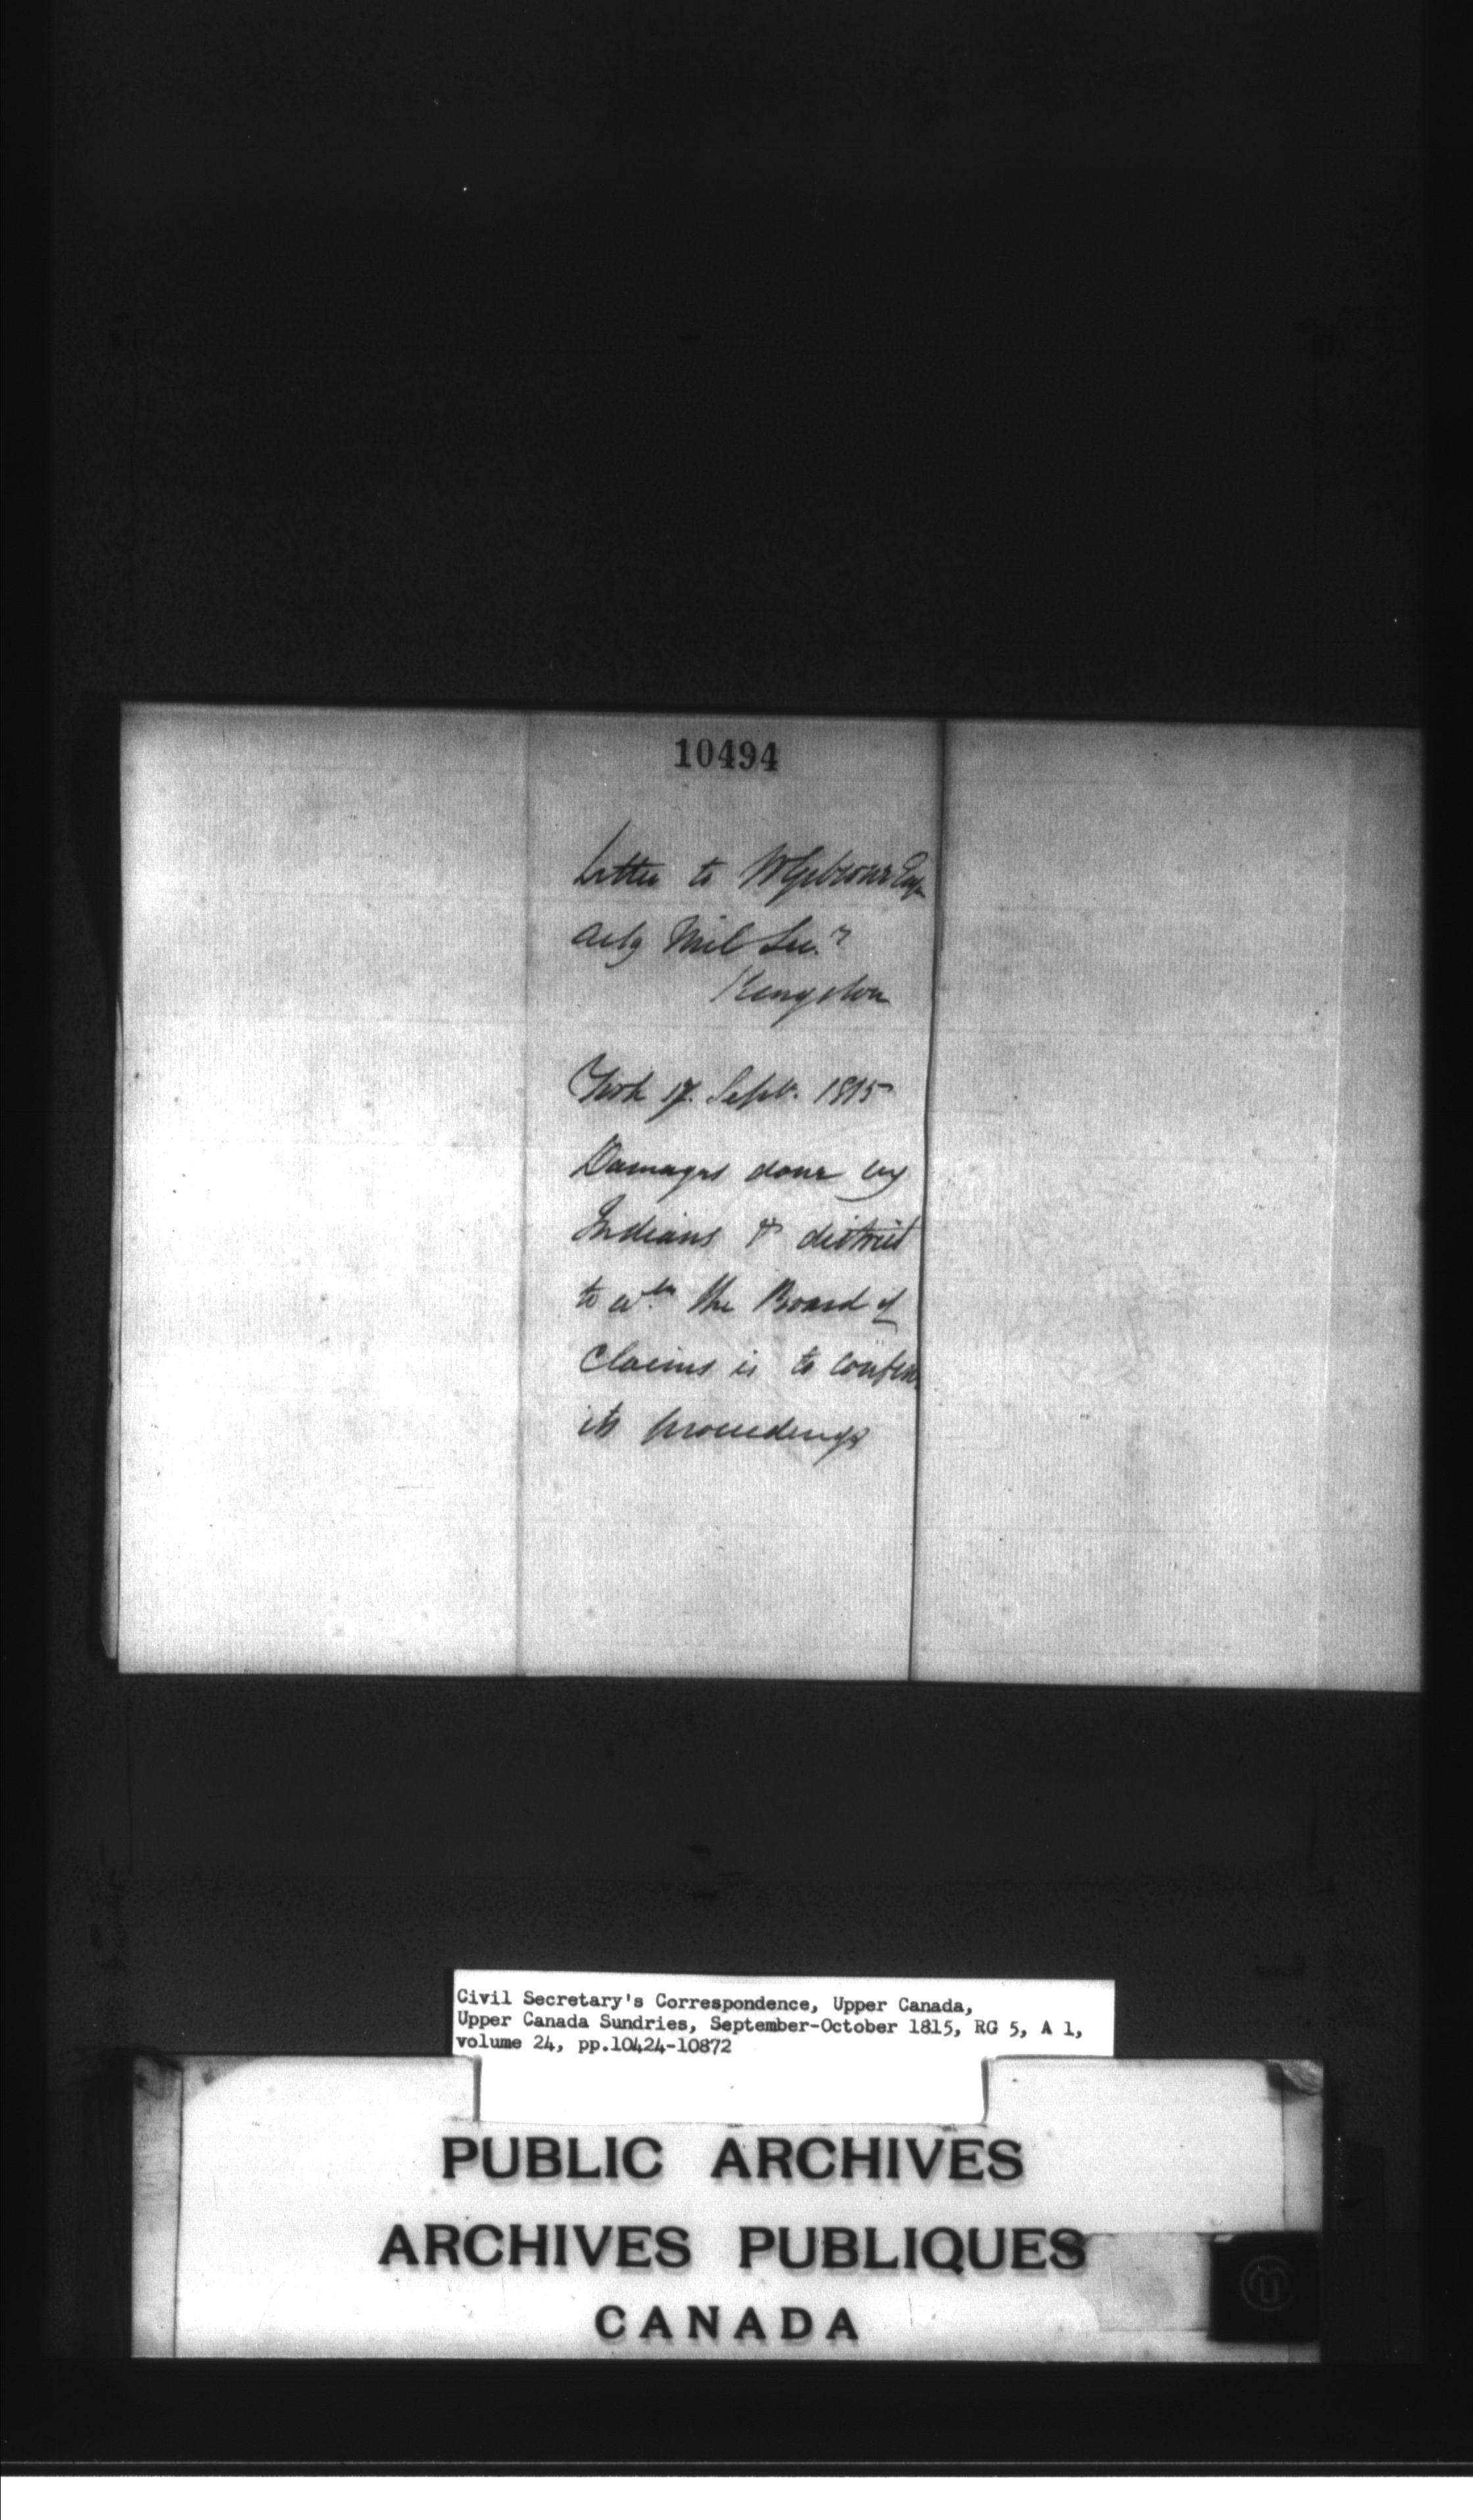 10494
Letter to W Gibsone Esqr
Actg Mil Secy
Kingston
York 17. Septr. 1815
Damages done by
Indians & district
to wch the Board of
Claims is to confine
its proceedings
Civil Secretary's Correspondence, Upper Canada,
Upper Canada Sundries, September-October 1815, RG 5, A 1,
volume 24, pp.10424-10872
PUBLIC ARCHIVES
ARCHIVES PUBLIQUES
CANADA